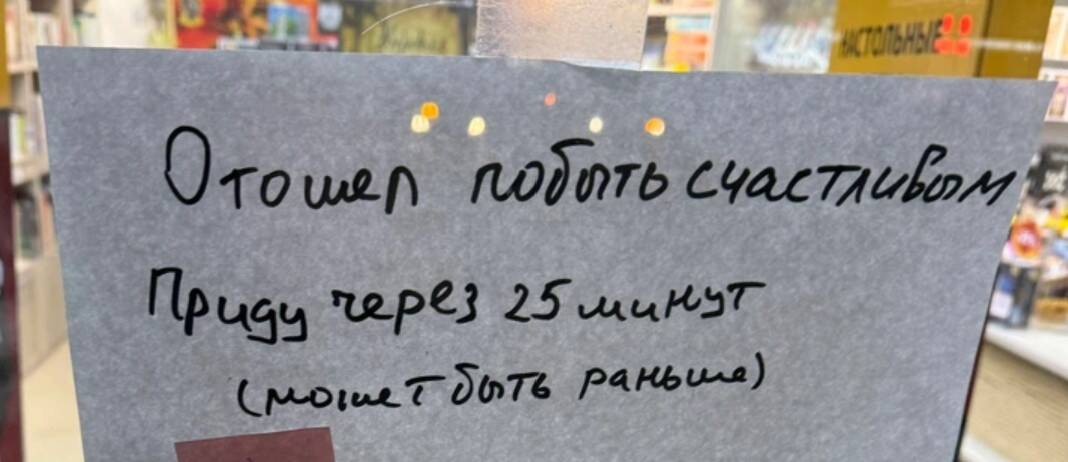 НАСТОЛЬНЫЕ
Отошел побыть счастливым
Приду через 25 минут
(может быть раньше)